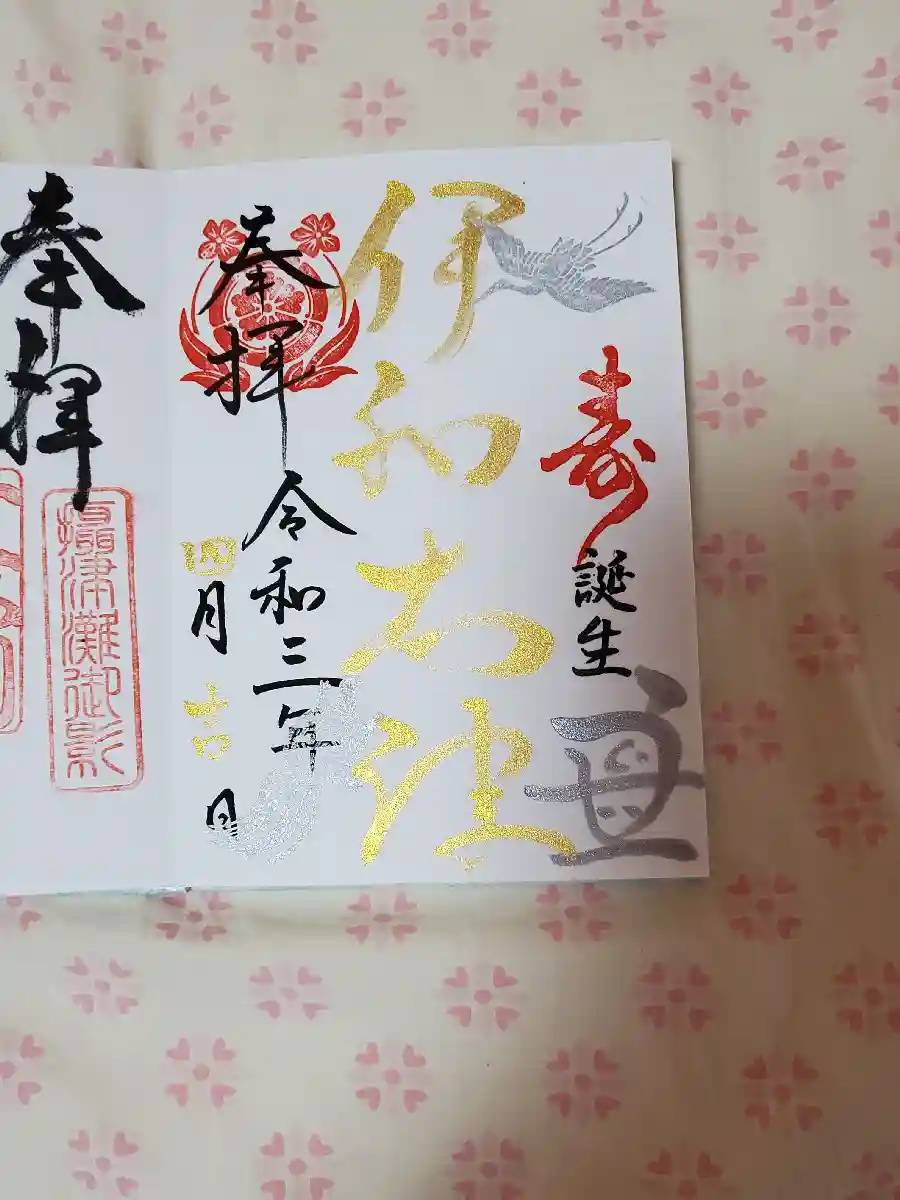 寿誕生
伊和志津
奉拝令和三年
四月吉日
奉拝
攝津灘御影